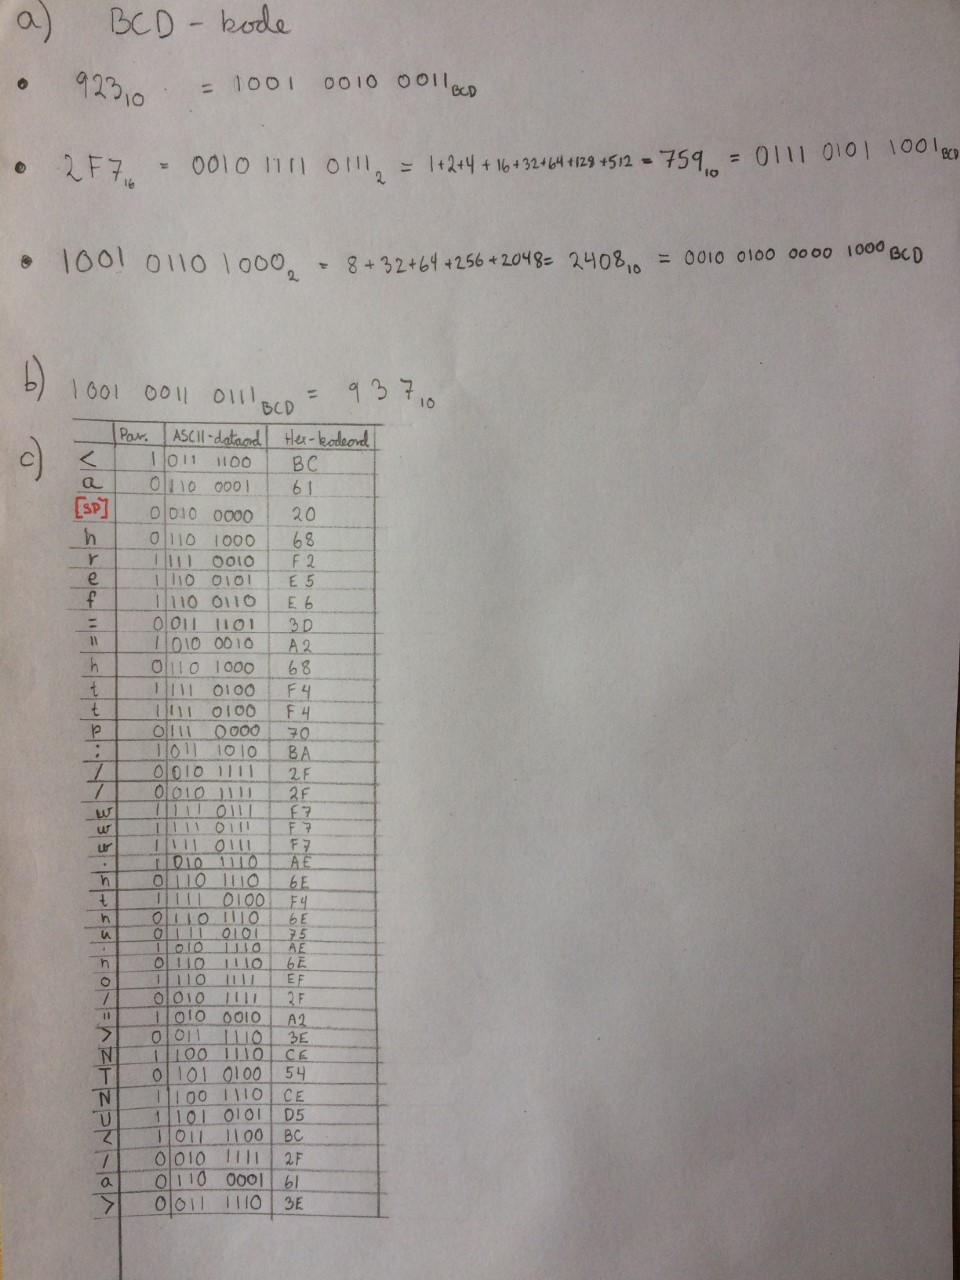 a) BCD - kode
• 923₁₀ = 1001 0010 0011 BCD
• 2F7₁₆ = 0010 1111 0111₂ = 1+2+4+16+32+64+128+512 = 759₁₀ = 0111 0101 1001 BCD
• 1001 0110 1000₂ = 8+32+64+256+2048= 2408₁₀ = 0010 0100 0000 1000 BCD
b) 1001 0011 0111 BCD = 937₁₀
c)
Par. ASCII-dataord Hex-kodeord
< 1 011 1100 BC
a 0 110 0001 61
[SP] 0 010 0000 20
h 0 110 1000 68
r 1 111 0010 F2
e 1 110 0101 E5
f 1 110 0110 E6
= 0 011 1101 3D
" 1 010 0010 A2
h 0 110 1000 68
t 1 111 0100 F4
t 1 111 0100 F4
p 0 111 0000 70
: 1 011 1010 BA
/ 0 010 1111 2F
/ 0 010 1111 2F
w 1 111 0111 F7
w 1 111 0111 F7
w 1 111 0111 F7
. 1 010 1110 AE
n 0 110 1110 6E
t 1 111 0100 F4
n 0 110 1110 6E
u 0 111 0101 75
. 1 010 1110 AE
n 0 110 1110 6E
o 1 110 1111 EF
/ 0 010 1111 2F
" 1 010 0010 A2
> 0 011 1110 3E
N 1 100 1110 CE
T 0 101 0100 54
N 1 100 1110 CE
U 1 101 0101 D5
< 1 011 1100 BC
/ 0 010 1111 2F
a 0 110 0001 61
> 0 011 1110 3E